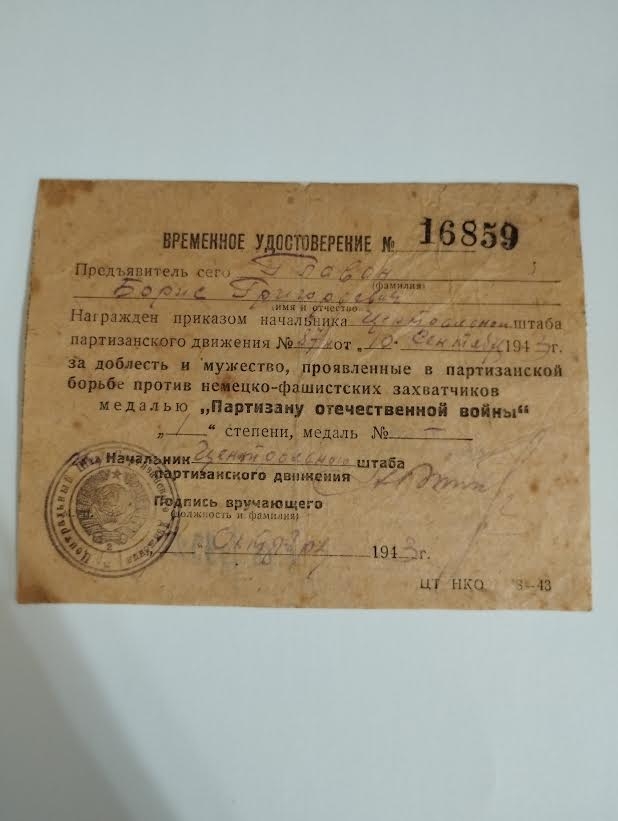 ВРЕМЕННОЕ УДОСТОВЕРЕНИЕ № 16859
Предъявитель сего Главан
(фамилия)
Борис Григорьевич
(имя и отчество
Награжден приказом начальника Центральной штаба
партизанского движения № от „10 Сентября 1943г.
за доблесть и мужество, проявленные в партизанской
борьбе против немецко-фашистских захватчиков
медалью „Партизану отечественной войны“
„ I “ степени, медаль № —
Начальник Центрального штаба
партизанского движения
Подпись вручающего
(должность и фамилия)
Октября 1943г.
ЦТ НКО 8—43
Центральный